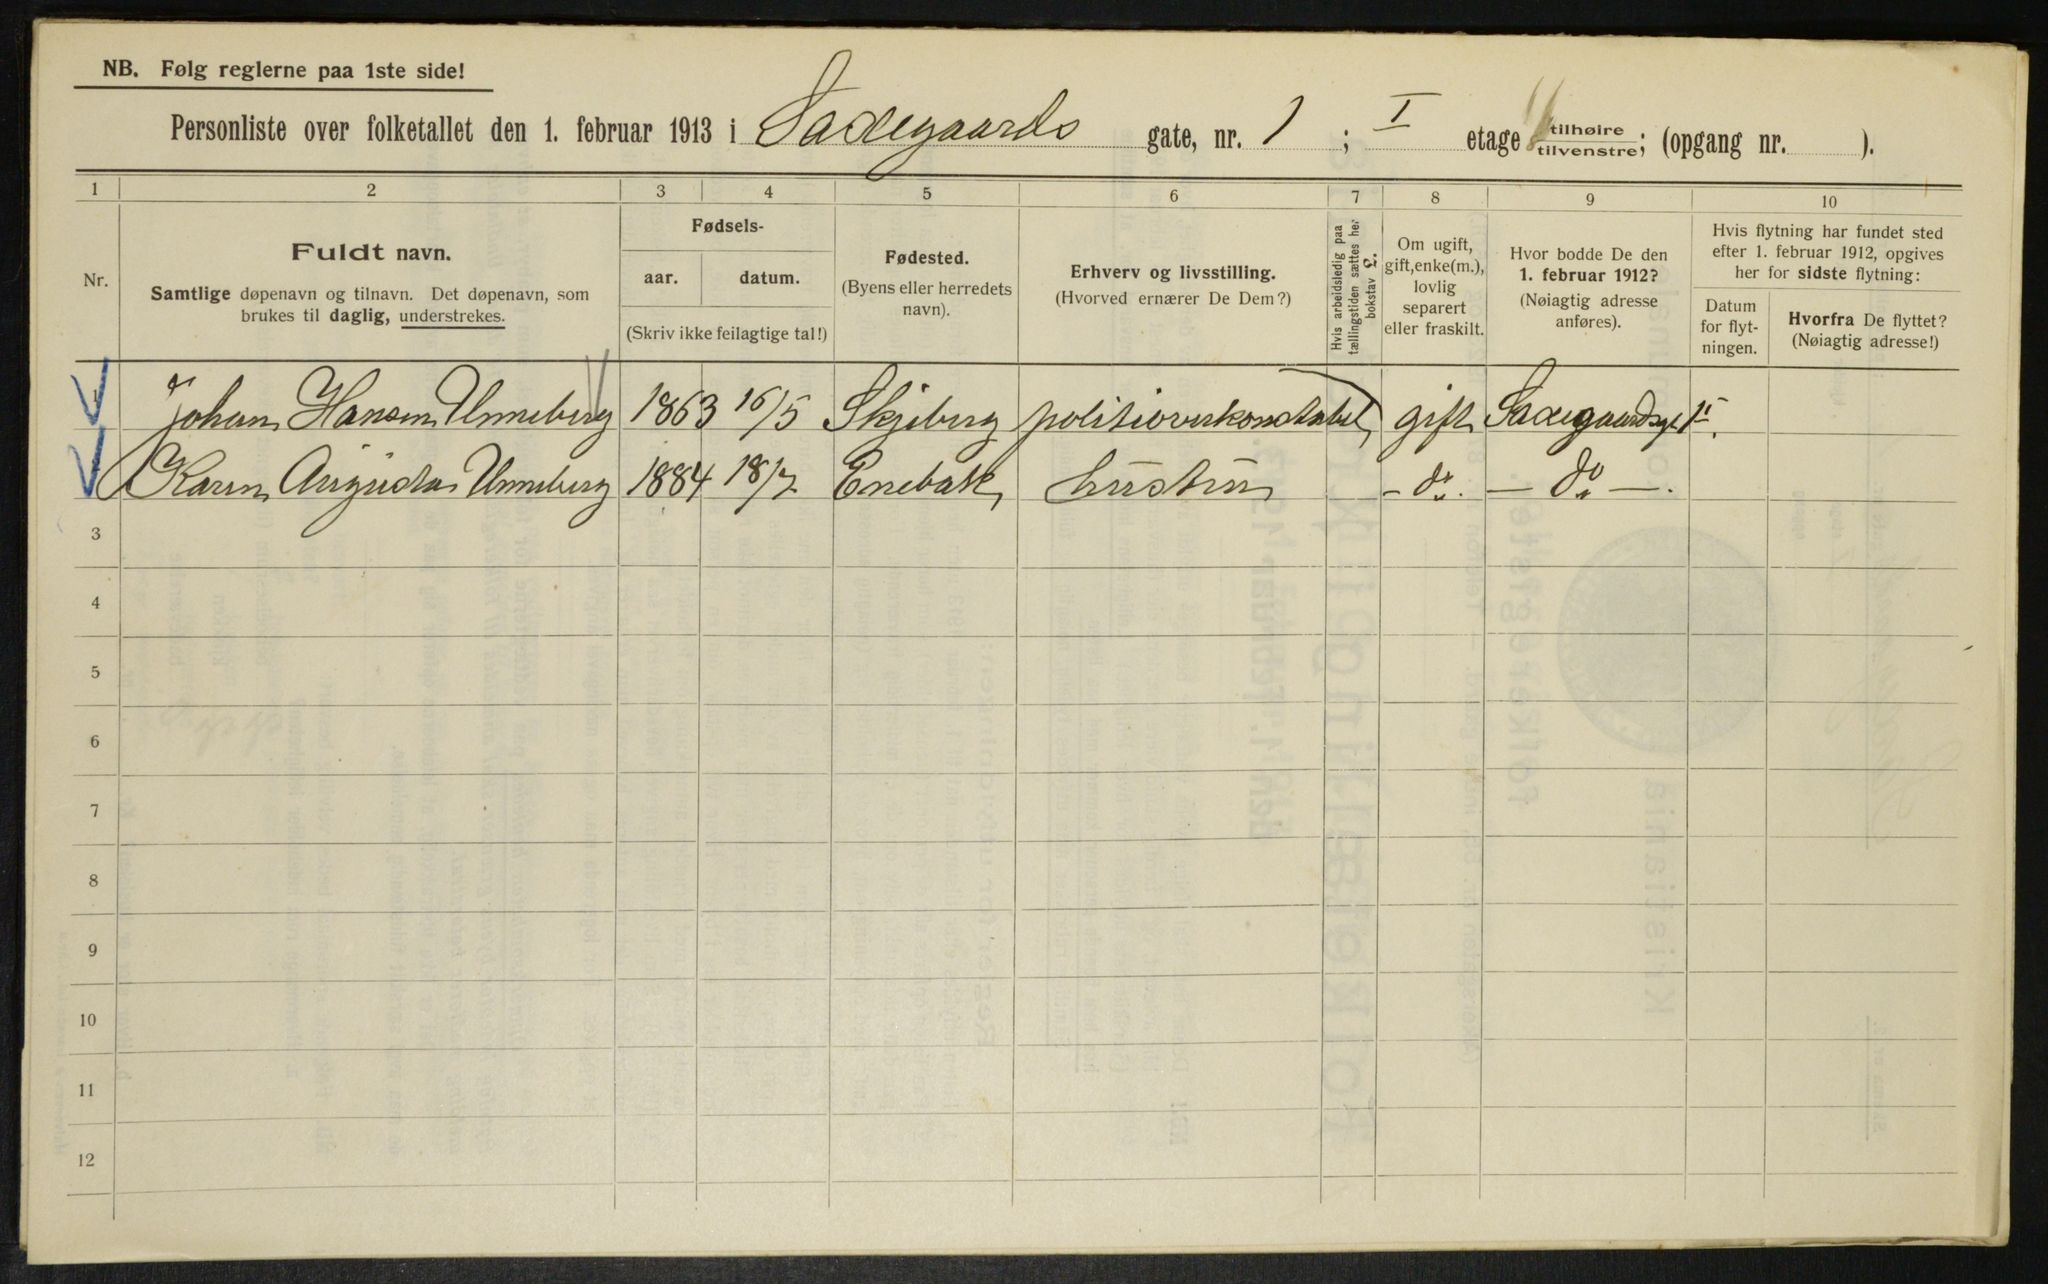 NB. Følg reglerne paa 1ste side!
Personliste over folketallet den 1. februar 1913 i Saxegaards gate, nr. 1 ; I etage tilhøire tilvenstre; (opgang nr. ).
1 2 3 4 5 6 7 8 9 10
Nr.
Fuldt navn.
Samtlige døpenavn og tilnavn. Det døpenavn, som
brukes til daglig, understrekes.
Fødsels-
aar. datum.
(Skriv ikke feilagtige tal!)
Fødested.
(Byens eller herredets
navn).
Erhverv og livsstilling.
(Hvorved ernærer De Dem?)
Hvis arbeidsledig paa
tællingstiden sættes her
bokstav L.
Om ugift,
gift, enke(m.),
lovlig
separert
eller fraskilt.
Hvor bodde De den
1. februar 1912?
(Nøiagtig adresse
anføres).
Hvis flytning har fundet sted
efter 1. februar 1912, opgives
her for sidste flytning:
Datum
for flyt-
ningen.
Hvorfra De flyttet?
(Nøiagtig adresse!)
Johan Hansen Unneberg 1863 16/5 Skjeberg politioverkonstabel gift Saxegaardsgt 1I.
Karen Augusta Unneberg 1884 18/7 Enebak hustru - do. - do -.
3
4
5
6
7
8
9
10
11
12